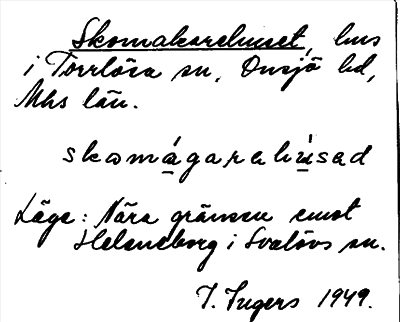 Skomakarehuset, hus
i Torrlösa sn, Onsjö hd,
Mhs län.
skomágarahúsad
Läge: Nära gränsen emot
Heleneborg i Svalövs sn.
I. Ingers 1949.